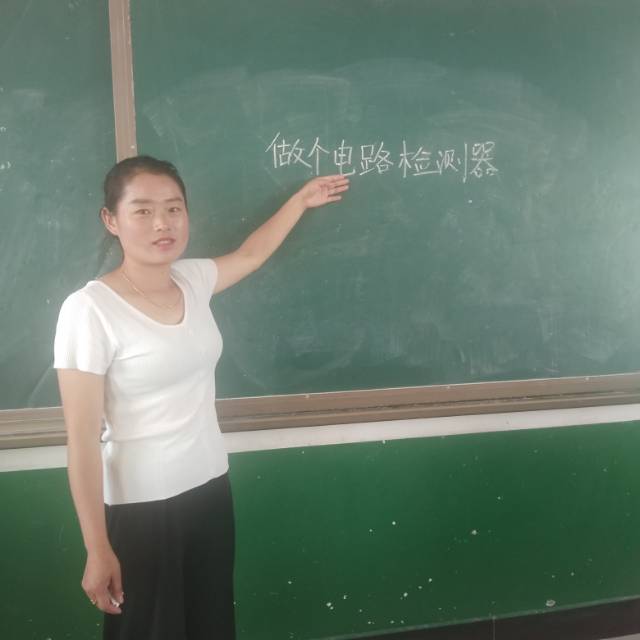 做个电路检测器